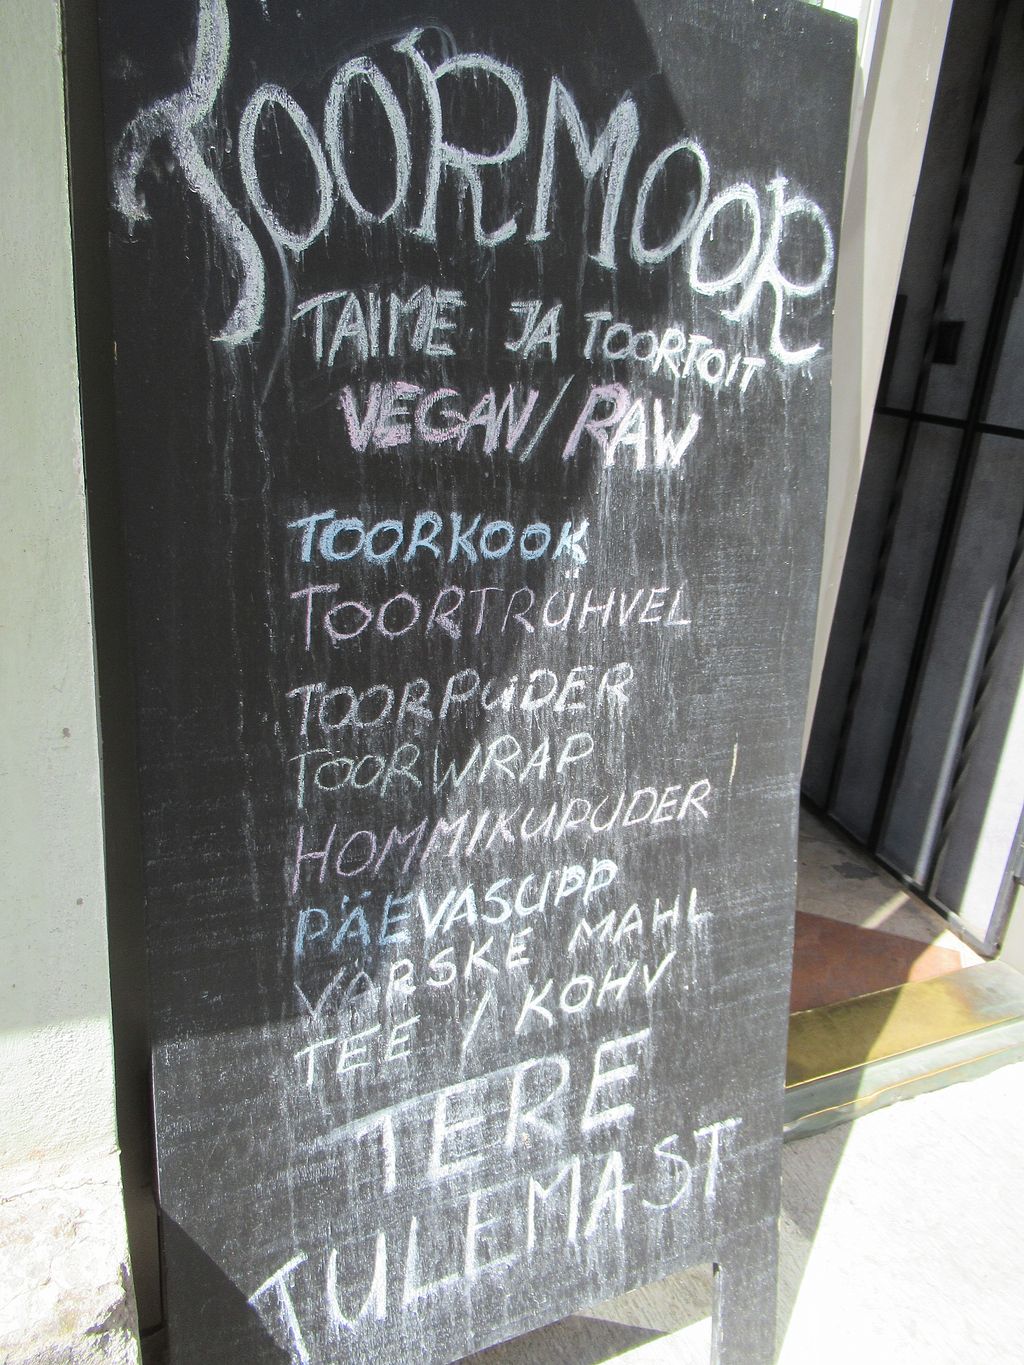 TOORMOOR
TAIME JA TOORTOIT
VEGAN/RAW
TOORKOOK
TOORTRÜHVEL
TOORPUDER
TOORWRAP
HOMMIKUPUDER
PÄEVASUPP
VÄRSKE MAHL
TEE / KOHV
TERE
TULEMAST